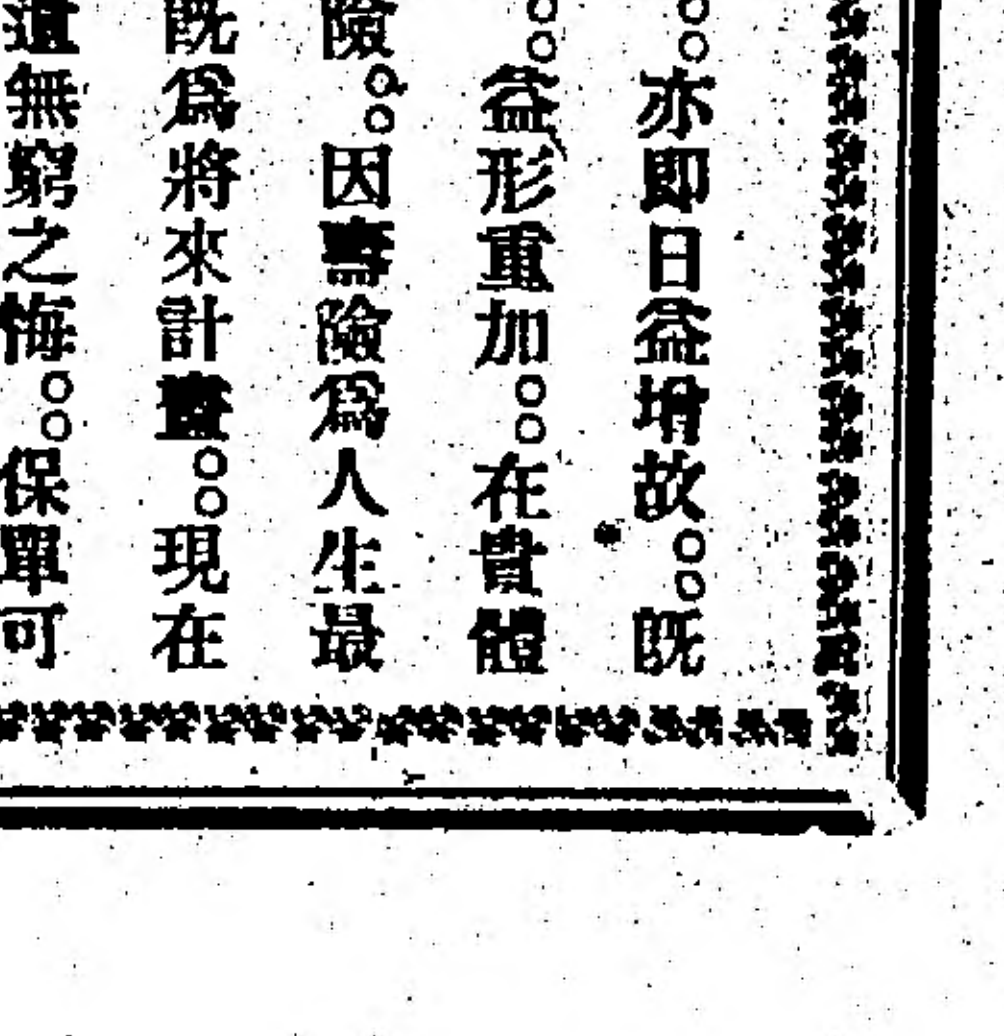 。。亦即日益增故。。既
。。益形重加。。在貴體
險。。因壽險爲人生最
既爲將來計畫。。現在
遺無窮之悔。。保單可